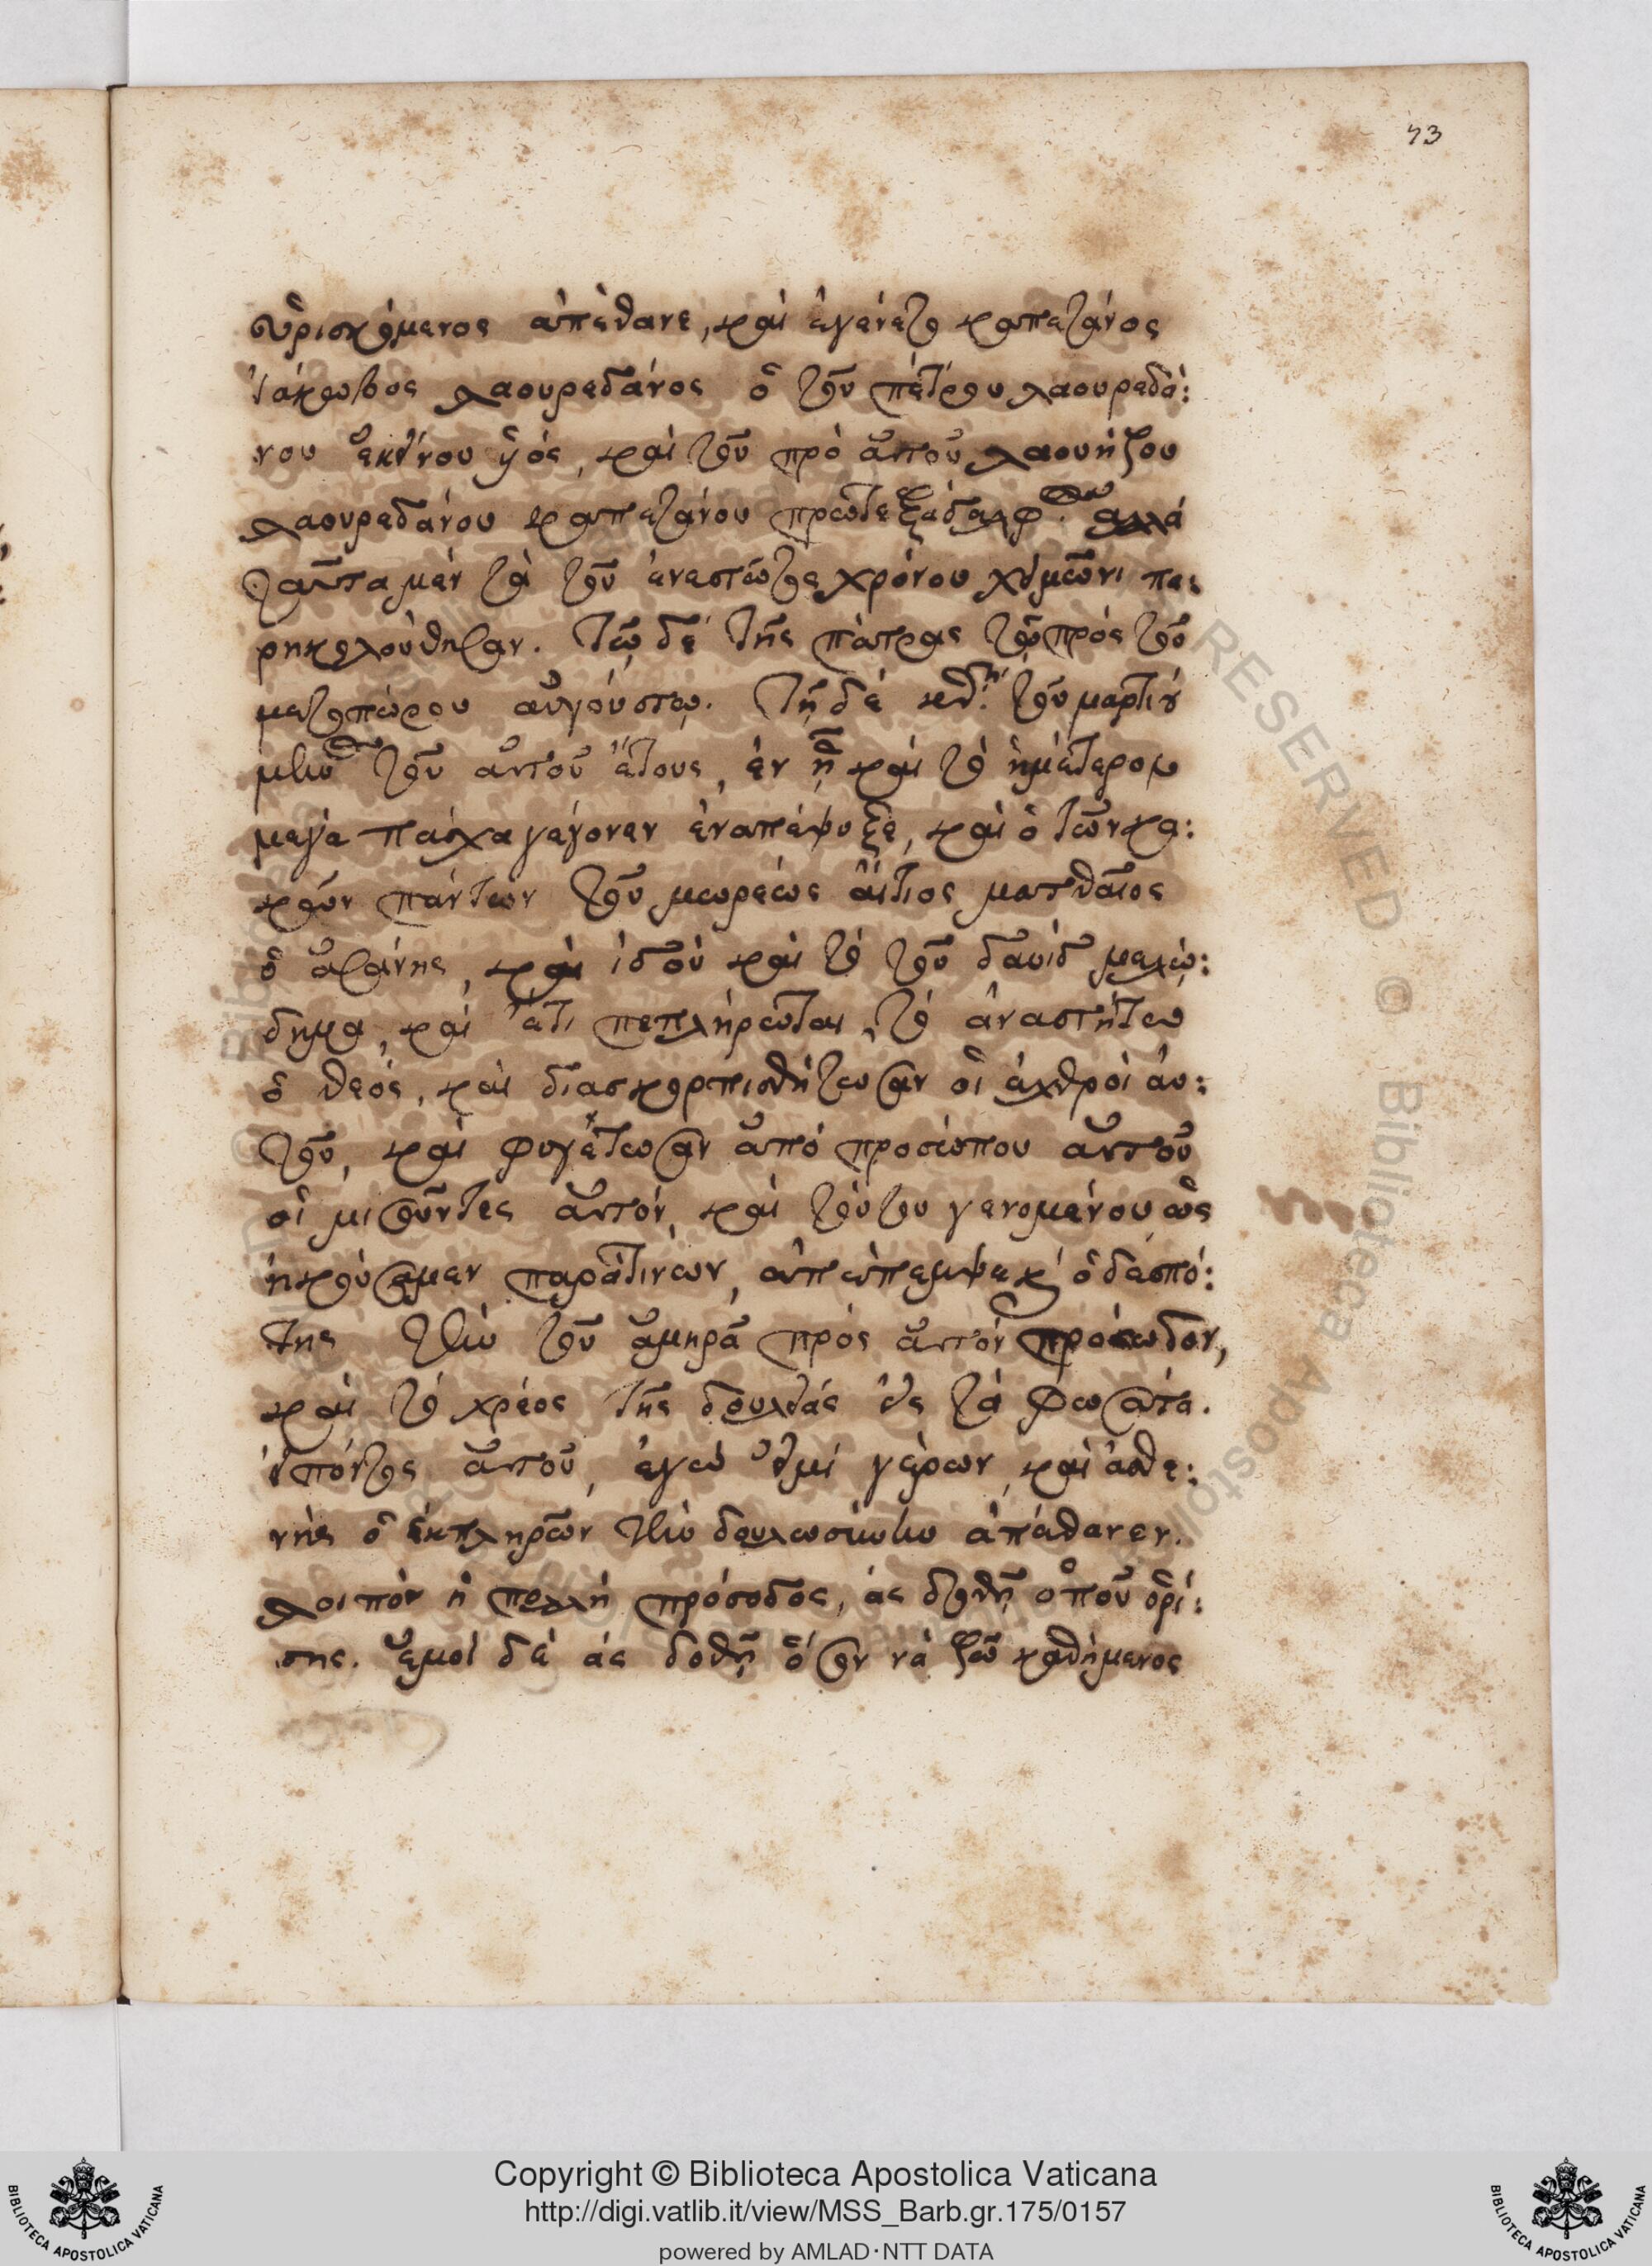 73
εὑρισκόμενος ἀπέθανε, καὶ ἐγένετο καπετάνος
ἰάκωβος λαουρεδάνος ὁ τοῦ πέτρου λαουρεδά:
νου ἐκείνου ὑός, καὶ τοῦ πρὸ αὐτοῦ λαουήζου
λαουρεδάνου καπετάνου πρωτεξάδελφ. ἀλλὰ
ταῦτα μὲν τὰ τοῦ ἐνεστῶτος χρόνου χειμῶνι πα:
ρηκολούθησαν. τῶ δὲ τῆς πάτρας τῶ πρὸς τοῦ
μετοπώρου αὐγούστω. τῆ δὲ κθ τοῦ μαρτίου
μηνὸς τοῦ αὐτοῦ ἔτους, ἐν ἧ καὶ τὸ ἡμέτερον
μέγα πάσχα γέγονεν ἐναπέψυξε, καὶ ὁ τῶν κα:
κῶν πάντων τοῦ μωρέως αἴτιος ματθαῖος
ὁ ἀσάνης, καὶ ἰδοὺ καὶ τὸ τοῦ δαυὶδ μελώ:
δημα, καὶ ἔτι πεπλήρωται, τὸ ἀναστήτω
ὁ θεός, καὶ διασκορπισθήτωσαν οἱ ἐχθροὶ αὐ:
τοῦ, καὶ φυγέτωσαν ἀπὸ προσώπου αὐτοῦ
οἱ μισοῦντες αὐτόν, καὶ τούτου γενομένου ὡς
ἠκούσαμεν παρά τινων, ἀπέπεμψε κ ὁ δεσπό:
της τὴν τοῦ ἀμηρᾶ πρὸς αὐτὸν πρόσωδον,
καὶ τὸ χρέος τῆς δουλείας εἰς τὰ φωσάτα.
εἰπόντος αὐτοῦ, ἐγὼ εἰμὶ γέρων, καὶ ἀσθε:
νής ὁ ἐκπληρῶν τὴν δουλωσύνην ἀπέθανεν.
λοιπὸν ἡ πολλὴ πρόσοδος, ἂς δοθῆ ὁποῦ ὁρί:
σης. ἐμοὶ δὲ ἂς δοθῆ ὅσον νὰ ζῶ καθήμενος
Copyright © Biblioteca Apostolica Vaticana
http://digi.vatlib.it/view/MSS_Barb.gr.175/0157
powered by AMLAD·NTT DATA
BIBLIOTECA APOSTOLICA VATICANA
BIBLIOTECA APOSTOLICA VATICANA